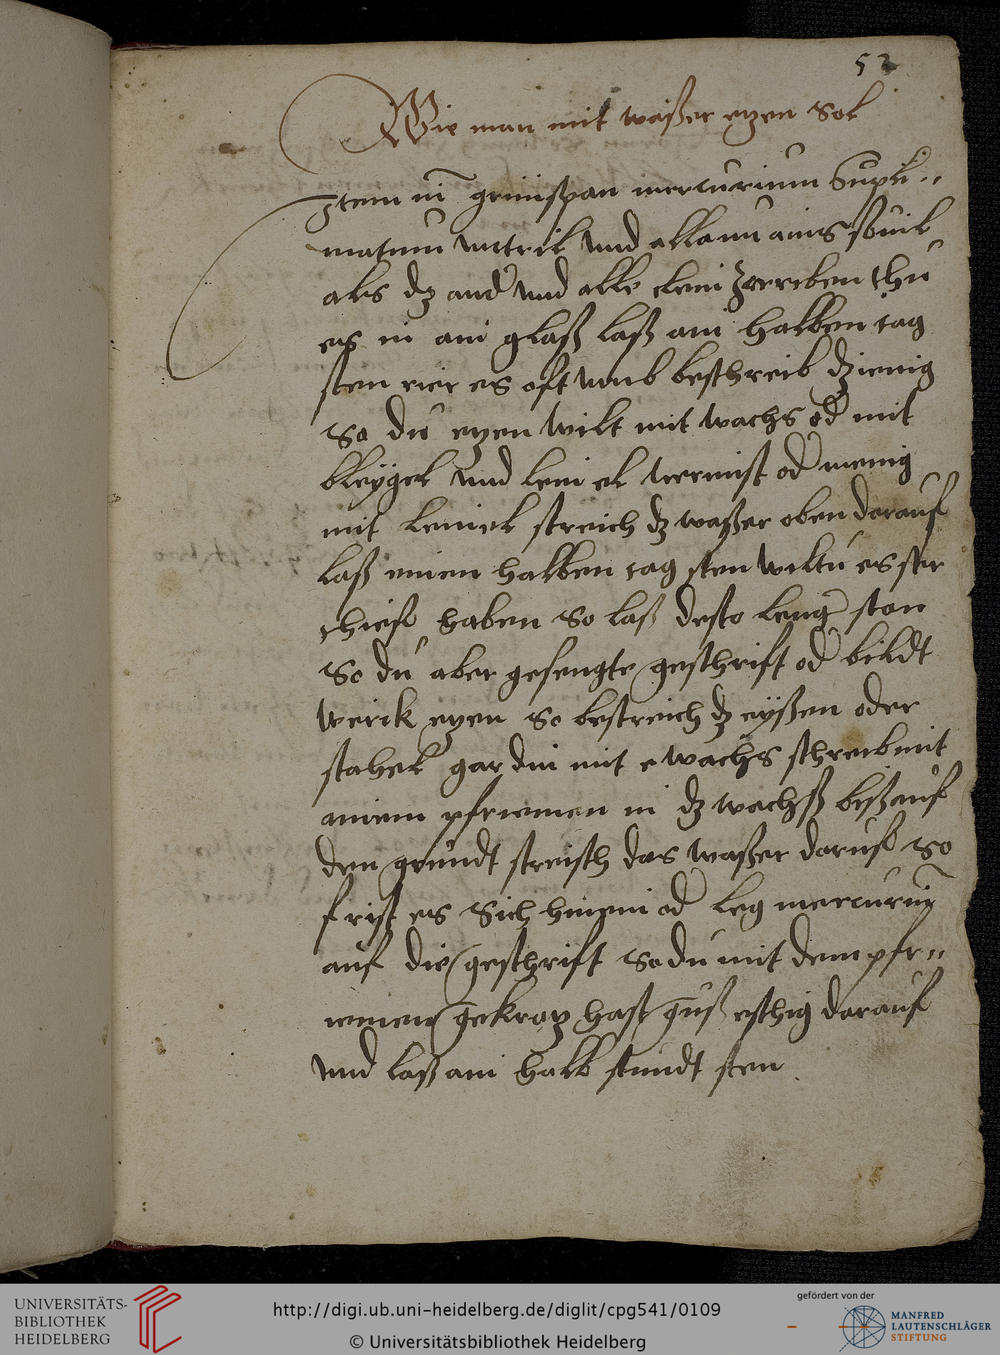 52
Wie man mit waßer etzen Sol
Item nim grünspan mercurium Supli„
matum vitril und allaun ains souil
als dz ander und alle clein zerriben thu
es in ain glaß laß ain halben tag
sten rier es oft umb beschreib dz ienig
So du etzen wilt mit wachs od mit
bleygel und lein el vermist od menig
mit leinel streich dz waßer oben darauf
laß einen halben tag sten wiltu es
haben So laß desto leng stan
So du aber gesengte geschrift od bildt
werck etzen So bestreich dz eyßen oder
stahel gar din mit wachs schreib mit
ainem pfriemen in dz wachß biß auf
den grundt streich das waßer daruf So
frist es Sich hinein od leg mercurium
auf die geschrift So du mit dem pfr„
iemen gekratz hast guß eschig darauf
und laß ain halb stundt sten
UNIVERSITÄTS-
BIBLIOTHEK
HEIDELBERG
http://digi.ub.uni-heidelberg.de/diglit/cpg541/0109
© Universitätsbibliothek Heidelberg
gefördert von der
MANFRED
LAUTENSCHLÄGER
STIFTUNG